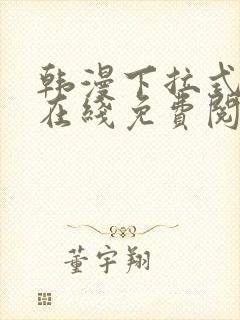 韩漫下拉式
在线免费阅
董宇翔